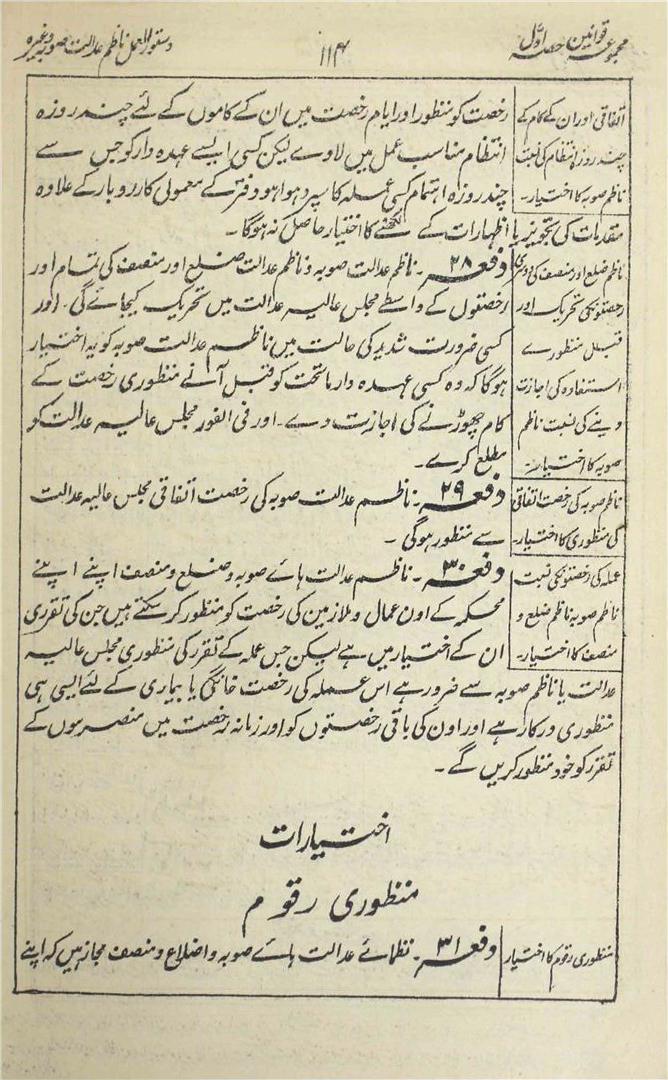 مجموعہ قوانین حصہ اوّل
۱۱۴
دستور العمل ناظم عدالت صوبہ وغیرہ
اتفاقی اور ان کے کام کے
چند روزہ انتظام کی نسبت
ناظم صوبہ کا اختیار۔
رخصت کو منظور اور ایام رخصت میں ان کے کاموں کے لئے چند روزہ
انتظام مناسب عمل میں لاوے لیکن کسی ایسے عہدہ دار کو جس سے
چند روزہ اہتمام کسی عملہ کا سپرد ہوا ہو دفتر کے معمولی کاروبار کے علاوہ
مقدمات کی تجویز یا اظہارات کے لکھنے کا اختیار حاصل نہ ہوگا۔
ناظم ضلع اور منصف کی دوسری
رخصتونکی تحریک اور
قبل منظوری
استفادہ کی اجازت
دینے کی نسبت ناظم
صوبہ کا اختیار۔
دفعہ ۲۸۔ ناظم عدالت صوبہ و ناظم عدالت ضلع اور منصف کی تمام اور
رخصتوں کے واسطے مجلس عالیہ عدالت میں تحریک کیجائے گی۔ اور
کسی ضرورت شدید کی حالت میں ناظم عدالت صوبہ کو یہ اختیار
ہوگا کہ وہ کسی عہدہ دار ماتحت کو قبل آنے منظوری رخصت کے
کام چھوڑنے کی اجازت دے۔ اور فی الفور مجلس عالیہ عدالت کو
مطلع کرے۔
ناظم صوبہ کی رخصت اتفاقی
کی منظوری کا اختیار۔
دفعہ ۲۹۔ ناظم عدالت صوبہ کی رخصت اتفاقی مجلس عالیہ عدالت
سے منظور ہوگی۔
عملہ کی رخصتونکی نسبت
ناظم صوبہ ناظم ضلع و
منصف کا اختیار۔
دفعہ ۳۰۔ ناظم عدالت ہائے صوبہ و ضلع و منصف اپنے اپنے
محکمہ کے اون عمال و ملازمین کی رخصت کو منظور کر سکتے ہیں جن کی تقرری
ان کے اختیار میں ہے لیکن جس عملہ کے تقرر کی منظوری مجلس عالیہ
عدالت یا ناظم صوبہ سے ضرور ہے اس عملہ کی رخصت خانگی یا بیماری کے لئے ایسی ہی
منظوری درکار ہے اور اون کی باقی رخصتوں کو اور زمانہ رخصت میں منصرموں کے
تقرر کو خود منظور کریں گے۔
اختیارات
منظوری رقوم
منظوری رقوم کا اختیار
دفعہ ۳۱۔ نظمائے عدالت ہائے صوبہ و اضلاع و منصف مجاز ہیں کہ اپنے